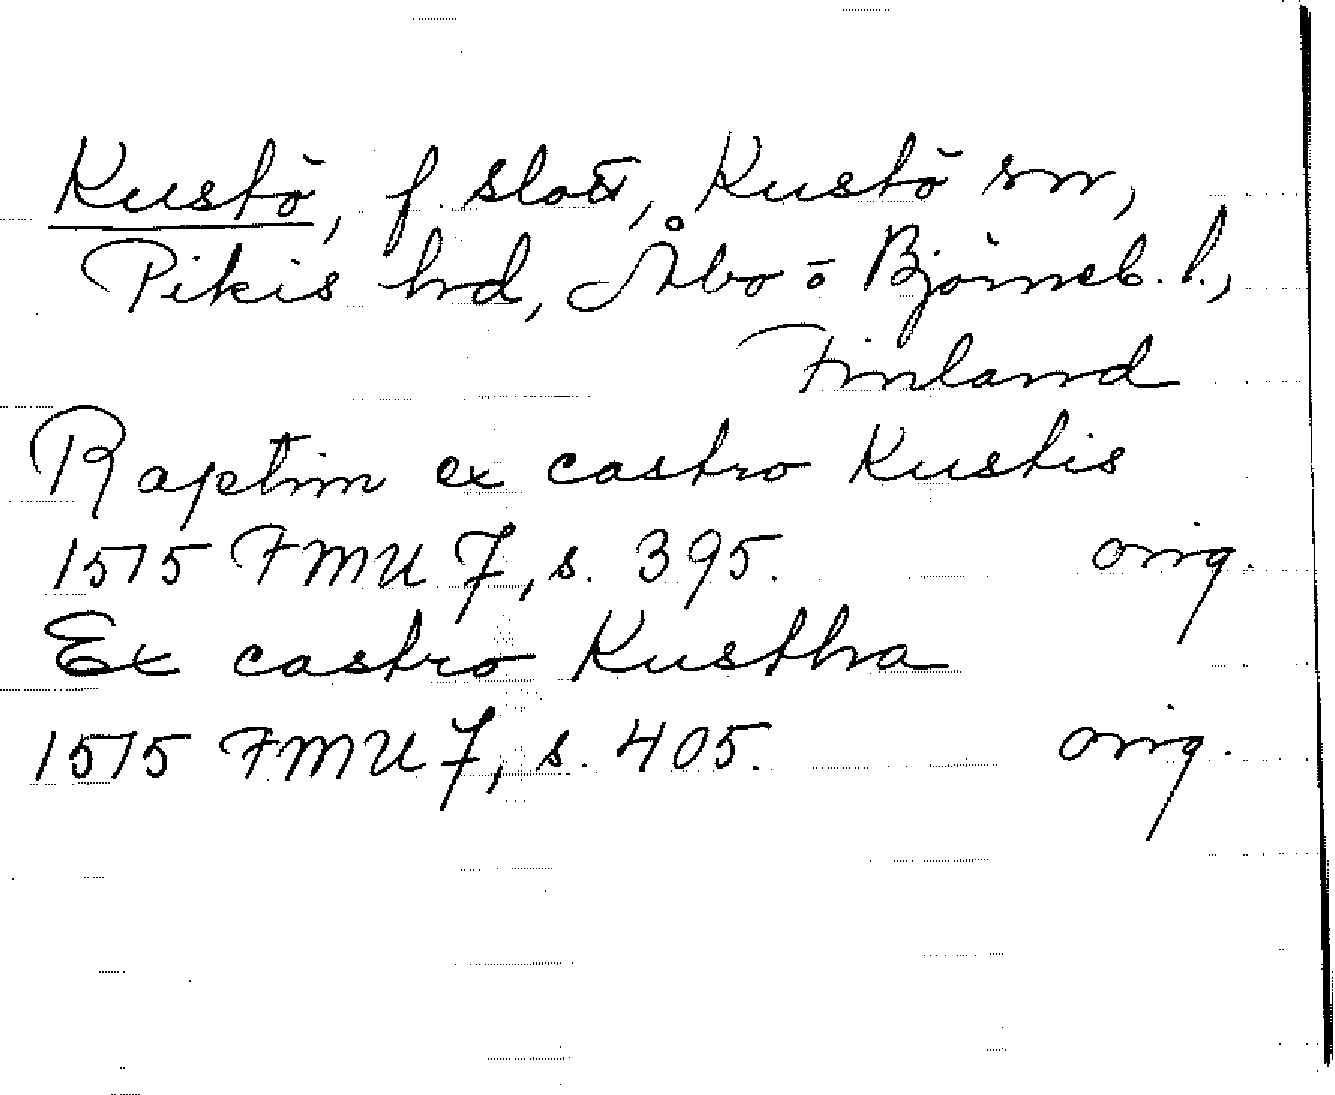 Kustö, f. slott, Kustö sn,
Pikis hd, Åbo o Björneb. l.,
Finland
Raptim ex castro Kustis
1515 FMU 7, s. 395. orig.
Ex castro Kustha
1515 FMU 7, s. 405. orig.